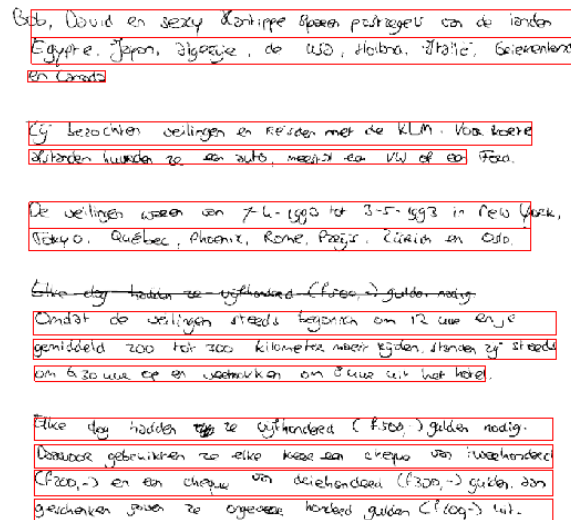 Bob, David en sexy Xantippe sparen postzegels van de landen
Egypte, Japan, Algerije, de USA, Holland, Italië, Griekenland
en Canada
Zij bezochten veilingen en reisden met de KLM. Voor korte
afstanden huurden ze een auto, meestal een VW of een Ford.
De veilingen waren van 7-4-1993 tot 3-5-1993 in New York,
Tokyo, Québec, Phoenix, Rome, Parijs, Zürich en Oslo.
Elke dag hadden ze vijfhonderd (f500,-) gulden nodig.
Omdat de veilingen steeds begonnen om 12 uur en je
gemiddeld 200 tot 300 kilometer moest rijden, stonden zij steeds
om 6.30 uur op en vertrokken om 8 uur uit het hotel.
Elke dag hadden ze vijfhonderd (f500,-) gulden nodig.
Daarvoor gebruikten ze elke keer een cheque van tweehonderd
(f200,-) en een cheque van driehonderd (f300,-) gulden. Aan
geschenken gaven ze ongeveer honderd gulden (f100,-) uit.